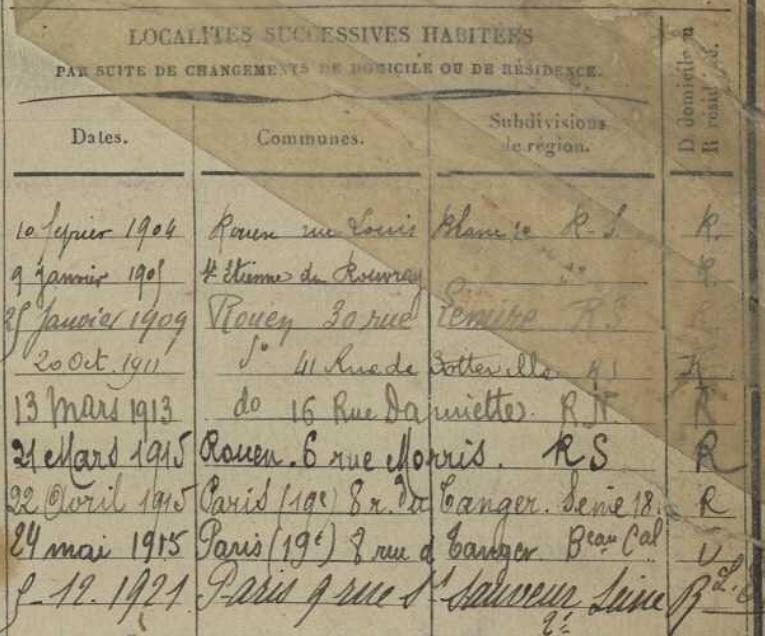 LOCALITÉS SUCCESSIVES HABITÉES
PAR SUITE DE CHANGEMENTS DE DOMICILE OU DE RÉSIDENCE.
Dates. Communes. Subdivisions de région. D domicile ou R résidence.
10 février 1904 Rouen rue Louis Blanc R.S. R.
9 janvier 1905 St Etienne du Rouvray do R.
25 Janvier 1909 Rouen 30 rue Lemire RS R
20 Oct. 1911 do 41 Rue de Sotteville RS R
13 Mars 1913 do 16 Rue Damiette. RN R
21 Mars 1915 Rouen. 6 rue Morris. RS R
22 Avril 1915 Paris (19e) 8 r. de Tanger. Seine 18. R
24 mai 1915 Paris (19e) 8 rue d Tanger Beau Cal
5-12.1921 Paris 9 rue St Sauveur Seine